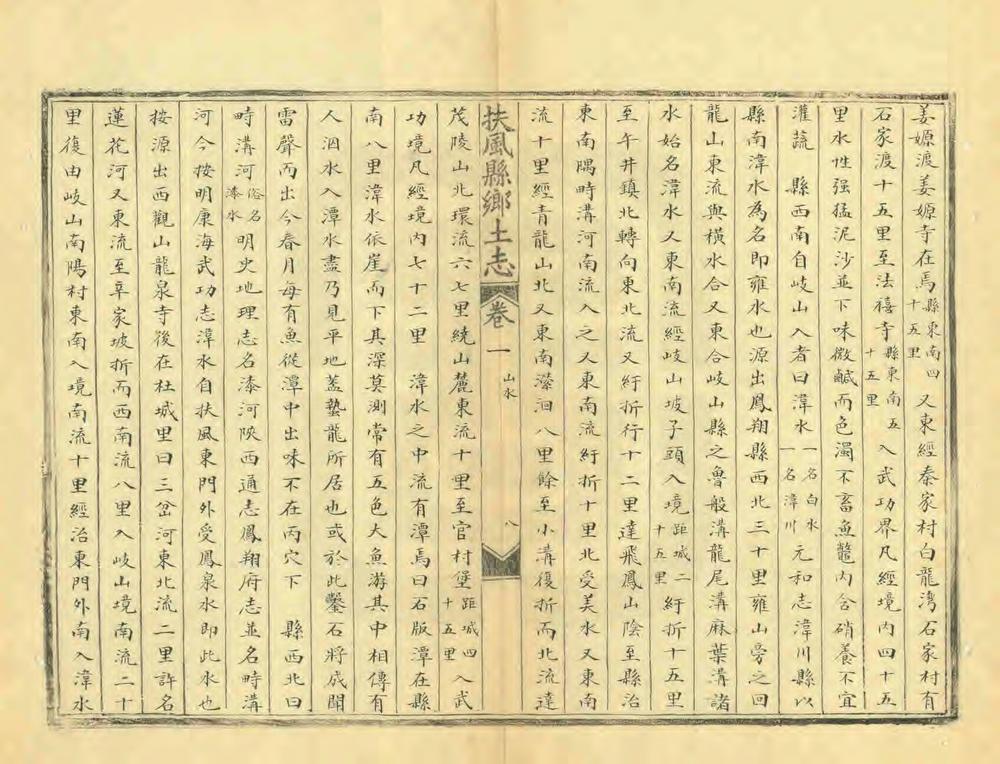 姜嫄渡姜嫄寺在焉縣東南四十五里又東經秦家村白龍灣石家村有
石家渡十五里至法禧寺縣東南五十五里入武功界凡經境內四十五
里水性强猛泥沙並下味微鹹而色濁不畜魚鼈內含硝養不宜
灌蔬　縣西南自岐山入者曰湋水一名白水一名漳川元和志湋川縣以
縣南湋水為名即雍水也源出鳳翔縣西北三十里雍山旁之回
龍山東流與橫水合又東合岐山縣之魯般溝龍尾溝麻葉溝諸
水始名湋水又東南流經岐山坡子頭入境距城二十五里紆折十五里
至午井鎮北轉向東北流又紆折行十二里達飛鳳山陰至縣治
東南隅時溝河南流入之又東南流紆折十里北受美水又東南
流十里經青龍山北又東南瀠洄八里餘至小溝復折而北流達
扶風縣鄉土志　卷一　山水　八
茂陵山北環流六七里繞山麓東流十里至官村堡距城四十五里入武
功境凡經境內七十二里　湋水之中流有潭焉曰石版潭在縣
南八里湋水依崖而下其深莫測常有五色大魚游其中相傳有
人泅水入潭水盡乃見平地蓋蟄龍所居也或於此鑿石將成聞
雷聲而出今春月每有魚從潭中出味不在丙穴下　縣西北曰
時溝河俗名漆水明史地理志名漆河陝西通志鳳翔府志並名時溝
河今按明康海武功志湋水自扶風東門外受鳳泉水即此水也
按源出西觀山龍泉寺後在杜城里曰三岔河東北流二里許名
蓮花河又東流至辛家坡折而西南流八里入岐山境南流二十
里復由岐山南陽村東南入境南流十里經治東門外南入湋水